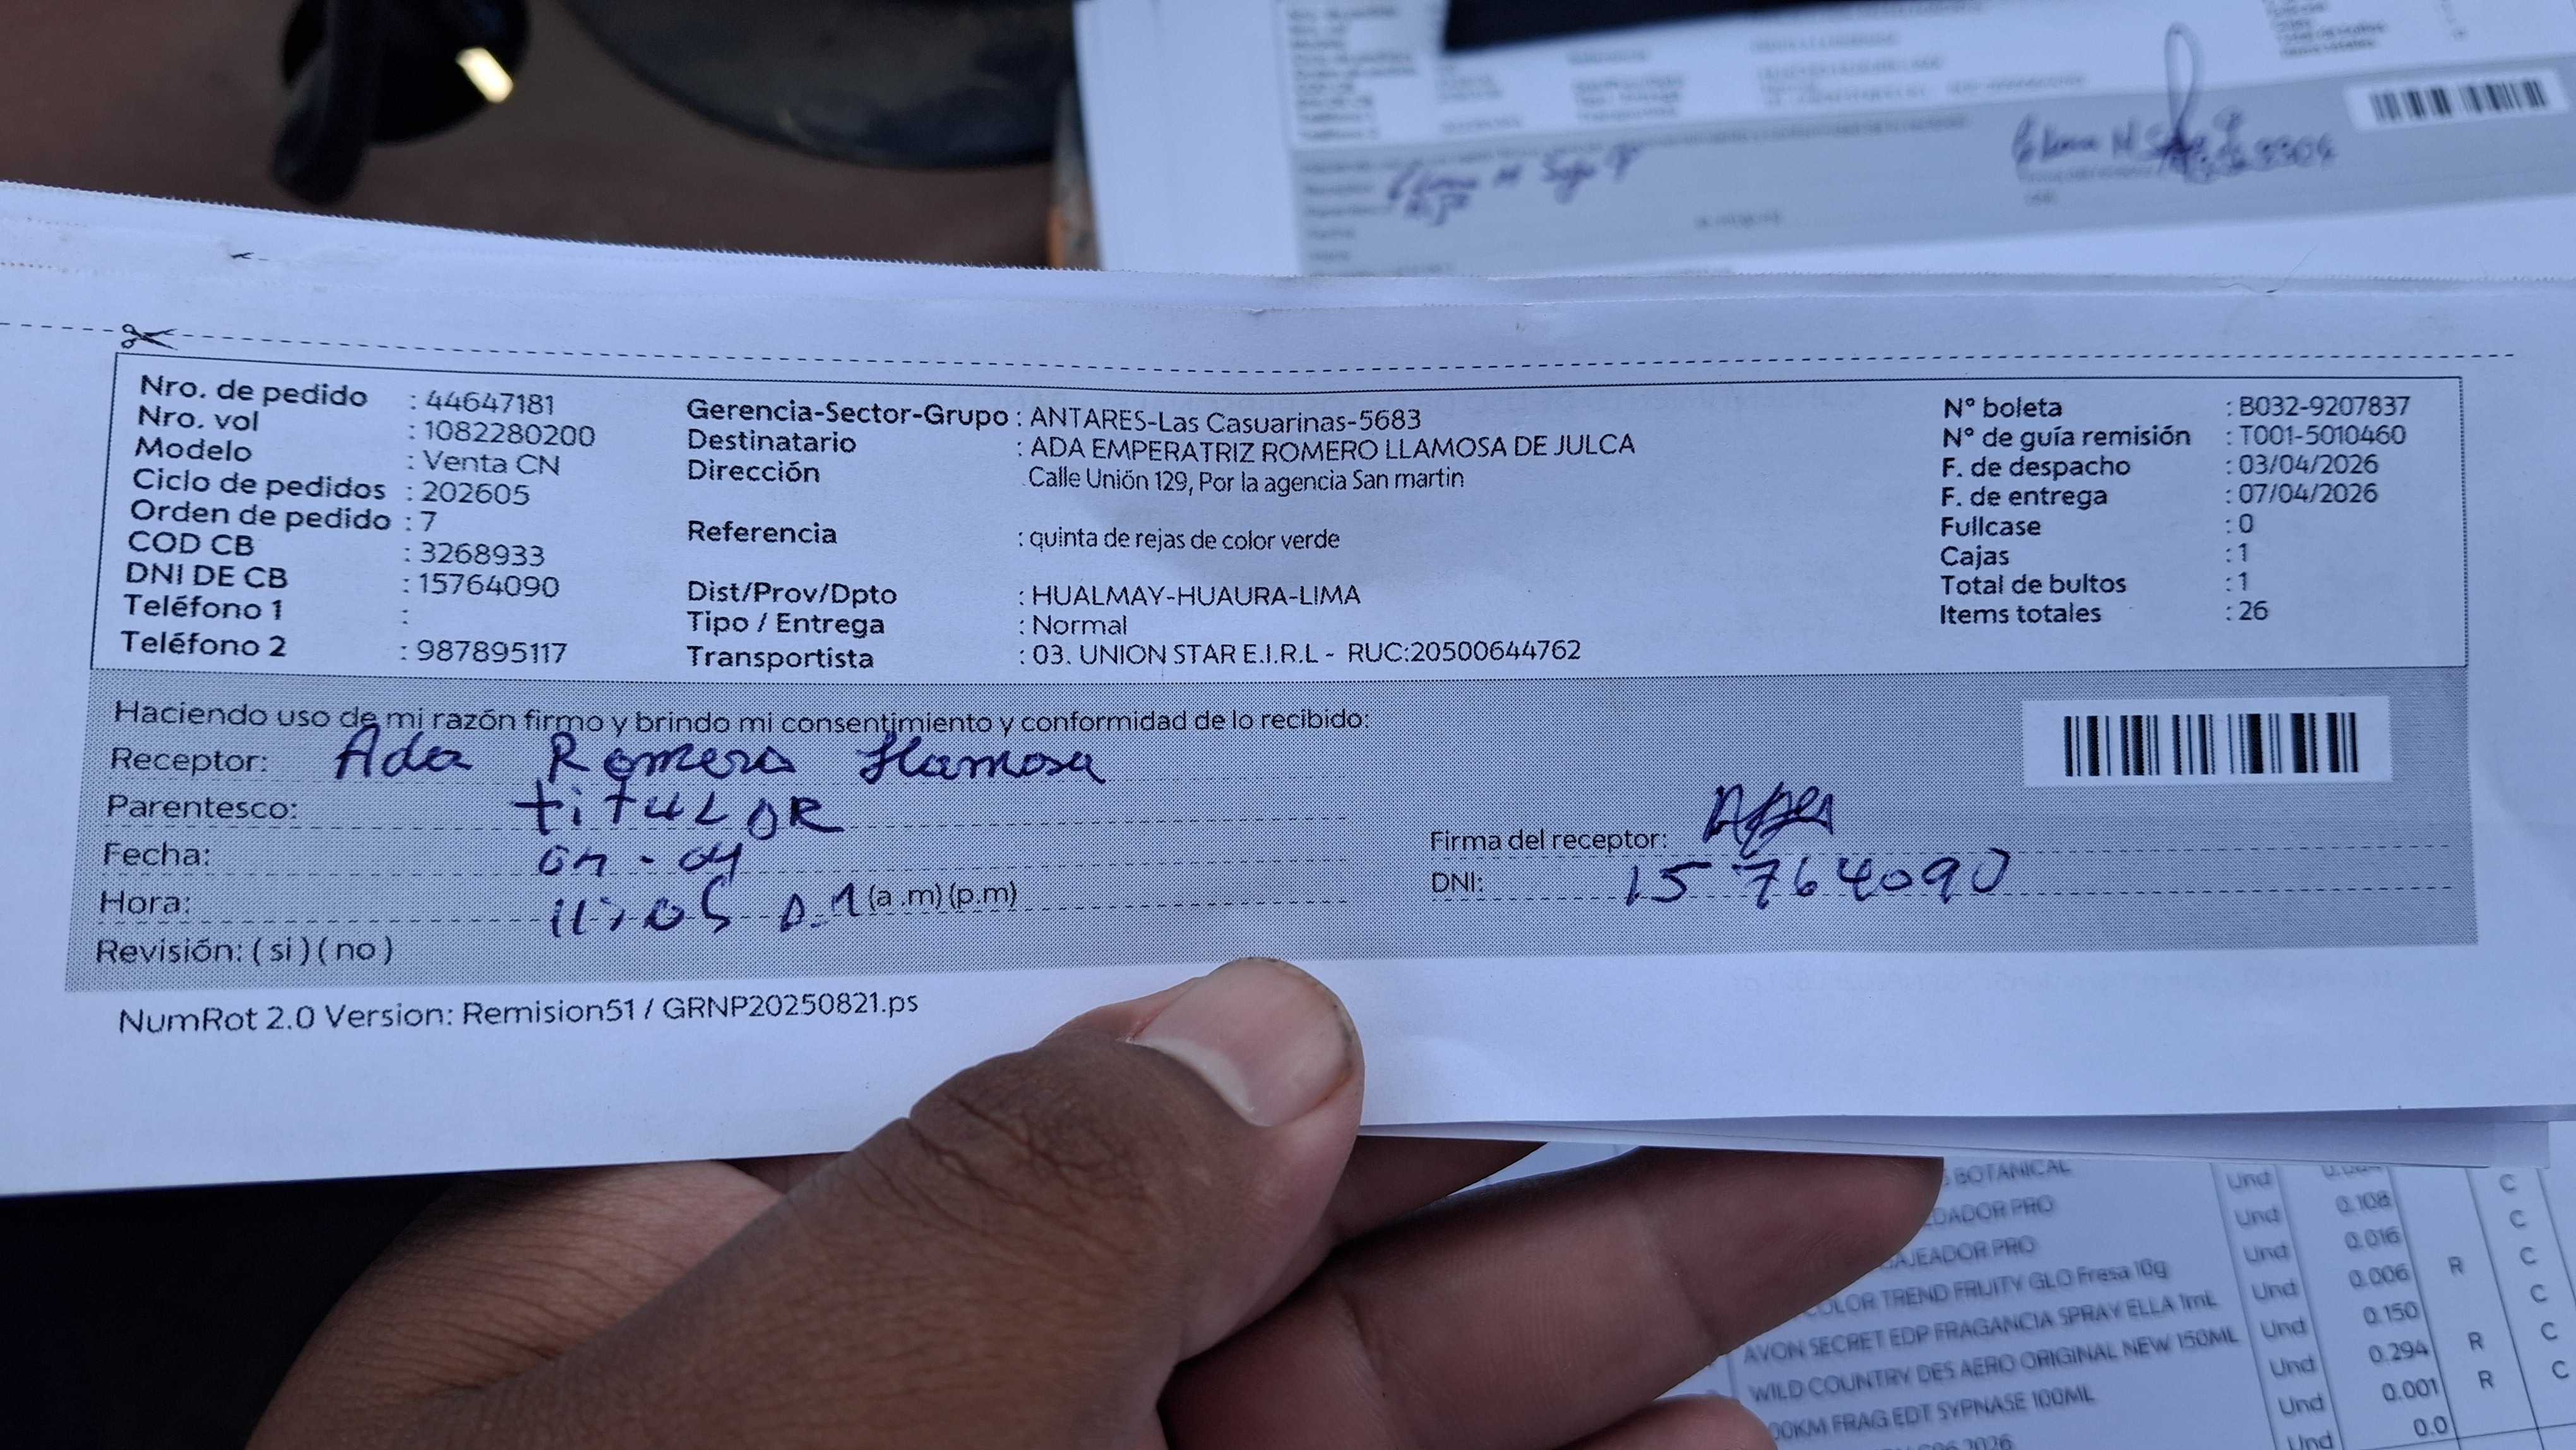 Nro. de pedido : 44647181
Nro. vol : 1082280200
Modelo : Venta CN
Ciclo de pedidos : 202605
Orden de pedido : 7
COD CB : 3268933
DNI DE CB : 15764090
Teléfono 1 :
Teléfono 2 : 987895117
Gerencia-Sector-Grupo : ANTARES-Las Casuarinas-5683
Destinatario : ADA EMPERATRIZ ROMERO LLAMOSA DE JULCA
Dirección Calle Unión 129, Por la agencia San martin
Referencia : quinta de rejas de color verde
Dist/Prov/Dpto : HUALMAY-HUAURA-LIMA
Tipo / Entrega : Normal
Transportista : 03. UNION STAR E.I.R.L - RUC:20500644762
N° boleta : B032-9207837
N° de guía remisión : T001-5010460
F. de despacho : 03/04/2026
F. de entrega : 07/04/2026
Fullcase : 0
Cajas : 1
Total de bultos : 1
Items totales : 26
Haciendo uso de mi razón firmo y brindo mi consentimiento y conformidad de lo recibido:
Receptor: Ada Romero Llamosa
Parentesco: tiTULAR
Fecha: 07-04
Hora: 11:05 (a .m) (p.m)
Revisión: ( si ) ( no )
Firma del receptor:
DNI: 15764090
NumRot 2.0 Version: Remision51 / GRNP20250821.ps
BOTANICAL Und
DADOR PRO Und 0.108 C
AJEADOR PRO Und 0.016 C
COLOR TREND FRUITY GLO Fresa 10g Und 0.006 R C
AVON SECRET EDP FRAGANCIA SPRAY ELLA 1mL Und 0.150 C
WILD COUNTRY DES AERO ORIGINAL NEW 150ML Und 0.294 R C
00KM FRAG EDT SYPNASE 100ML Und 0.001 R C
2026 Und 0.0